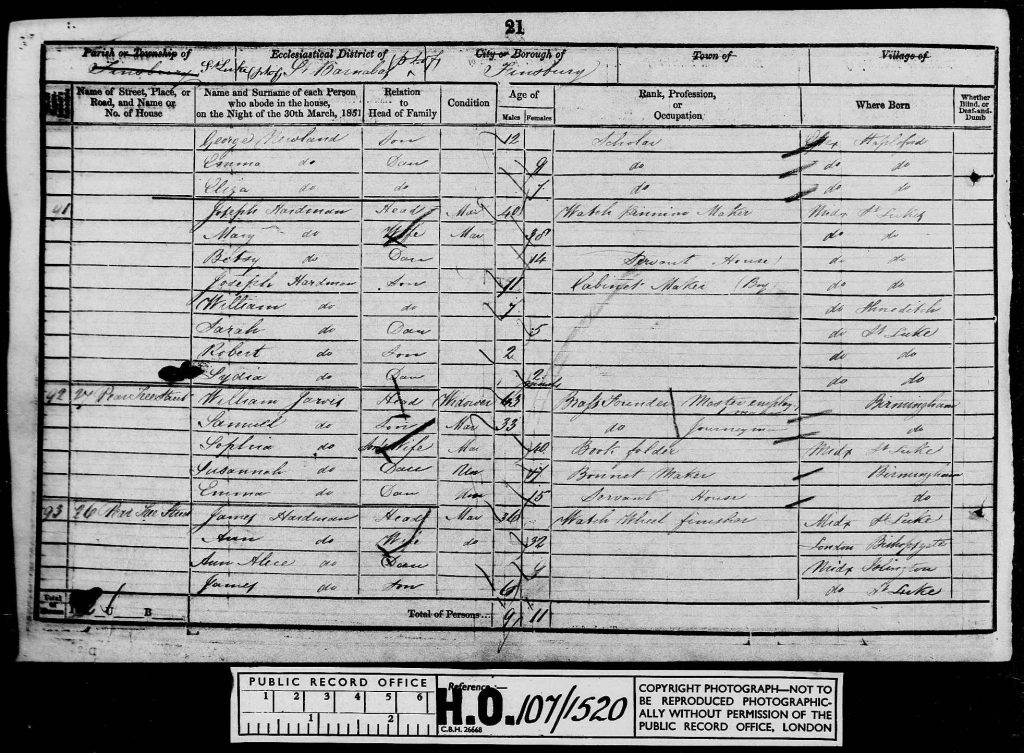 21
Parish or Township of Ecclesiastical District of City or Borough of Town of Village of
Finsbury St Luke St Barnabas Finsbury
Name of Street, Place, or Road, and Name or No. of House
Name and Surname of each Person who abode in the house, on the Night of the 30th March, 1851
Relation to Head of Family
Condition
Age of
Males Females
Rank, Profession, or Occupation
Where Born
Whether Blind, or Deaf-and-Dumb
George Newland Son 12 Scholar Stapleford
Emma do Dau 9 do do do
Eliza do do 7 do do do
91 Joseph Hardman Head Mar 40 Watch Maker Midx St Lukes
Mary do Wife Mar 38 do do
Betsy do Dau 14 Servant House do do
Joseph Hardman Son 11 Cabinet Maker (Boy) do do
William do do 7 do
Sarah do Dau 5 do St Luke
Robert do Son 2 do do
Lydia do Dau 2 do do
92 27 Pear Tree Street William Jarvis Head Widower 63 Brass Founder Master Birmingham
Samuel do Son Mar 33 do Journeyman do
Sophia do Wife Mar 40 Book folder Midx St Luke
Susannah do Dau Un 17 Bonnet Maker Birmingham
Emma do Dau Un 15 Servant House do
93 26 Pear Tree Street James Hardman Head Mar 36 Watch Wheel finisher Midx St Luke
Ann do Wife do 32 London Bishopsgate
Ann Alice do Dau Midx Islington
James do Son 6 do St Luke
Total of Houses U B Total of Persons... 9 11
PUBLIC RECORD OFFICE
1 2 3 4 5 6
1 2
Reference:—
H.O. 107/1520
C.B.H. 26668
COPYRIGHT PHOTOGRAPH—NOT TO
BE REPRODUCED PHOTOGRAPHIC-
ALLY WITHOUT PERMISSION OF THE
PUBLIC RECORD OFFICE, LONDON